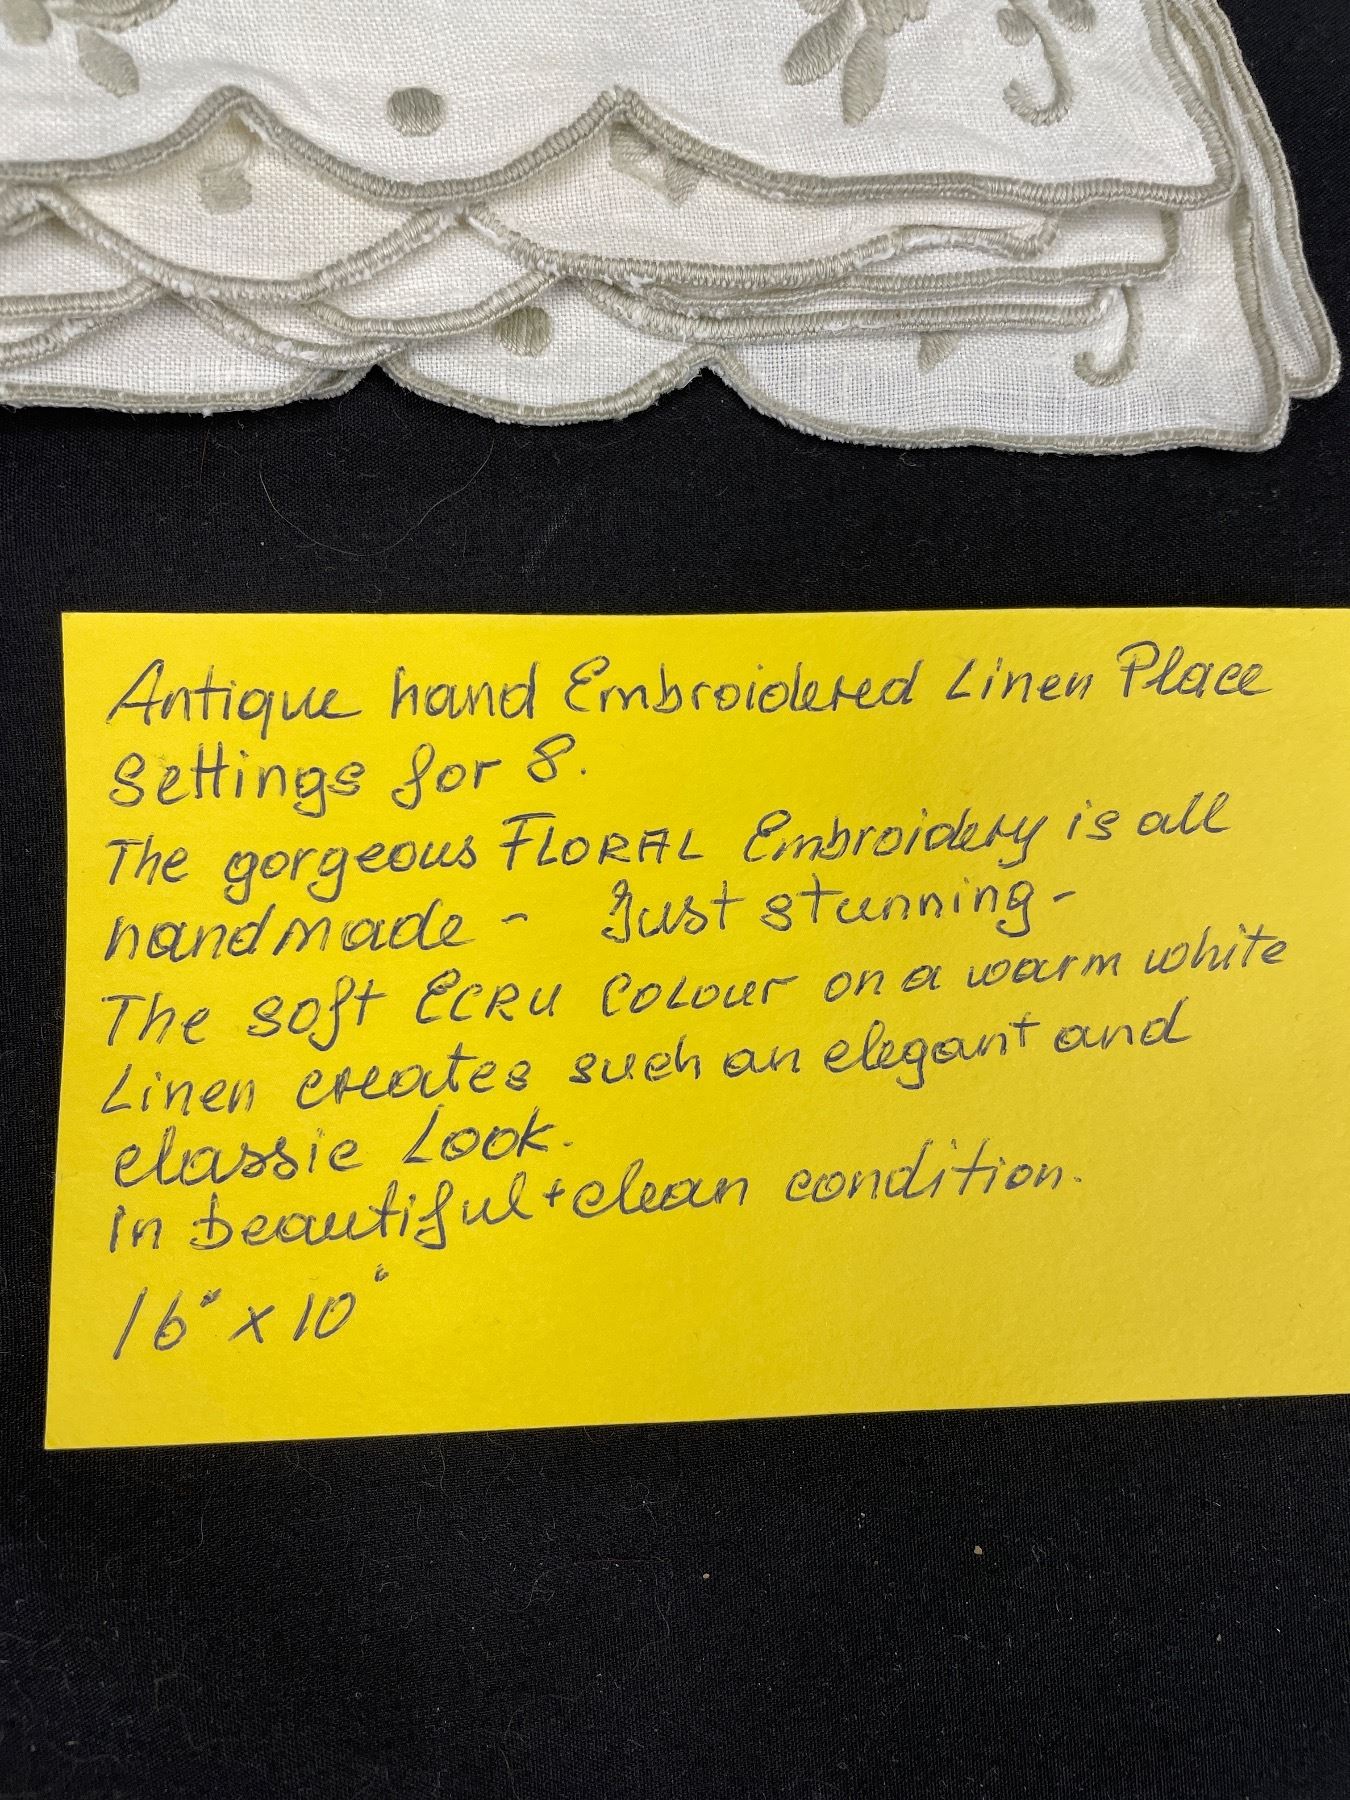 Antique hand Embroidered Linen Place
Settings for 8.
The gorgeous FLORAL Embroidery is all
handmade - Just stunning -
The soft ECRU COLOUR on a warm white
Linen creates such an elegant and
classic Look.
In beautiful + clean condition.
16" x 10"